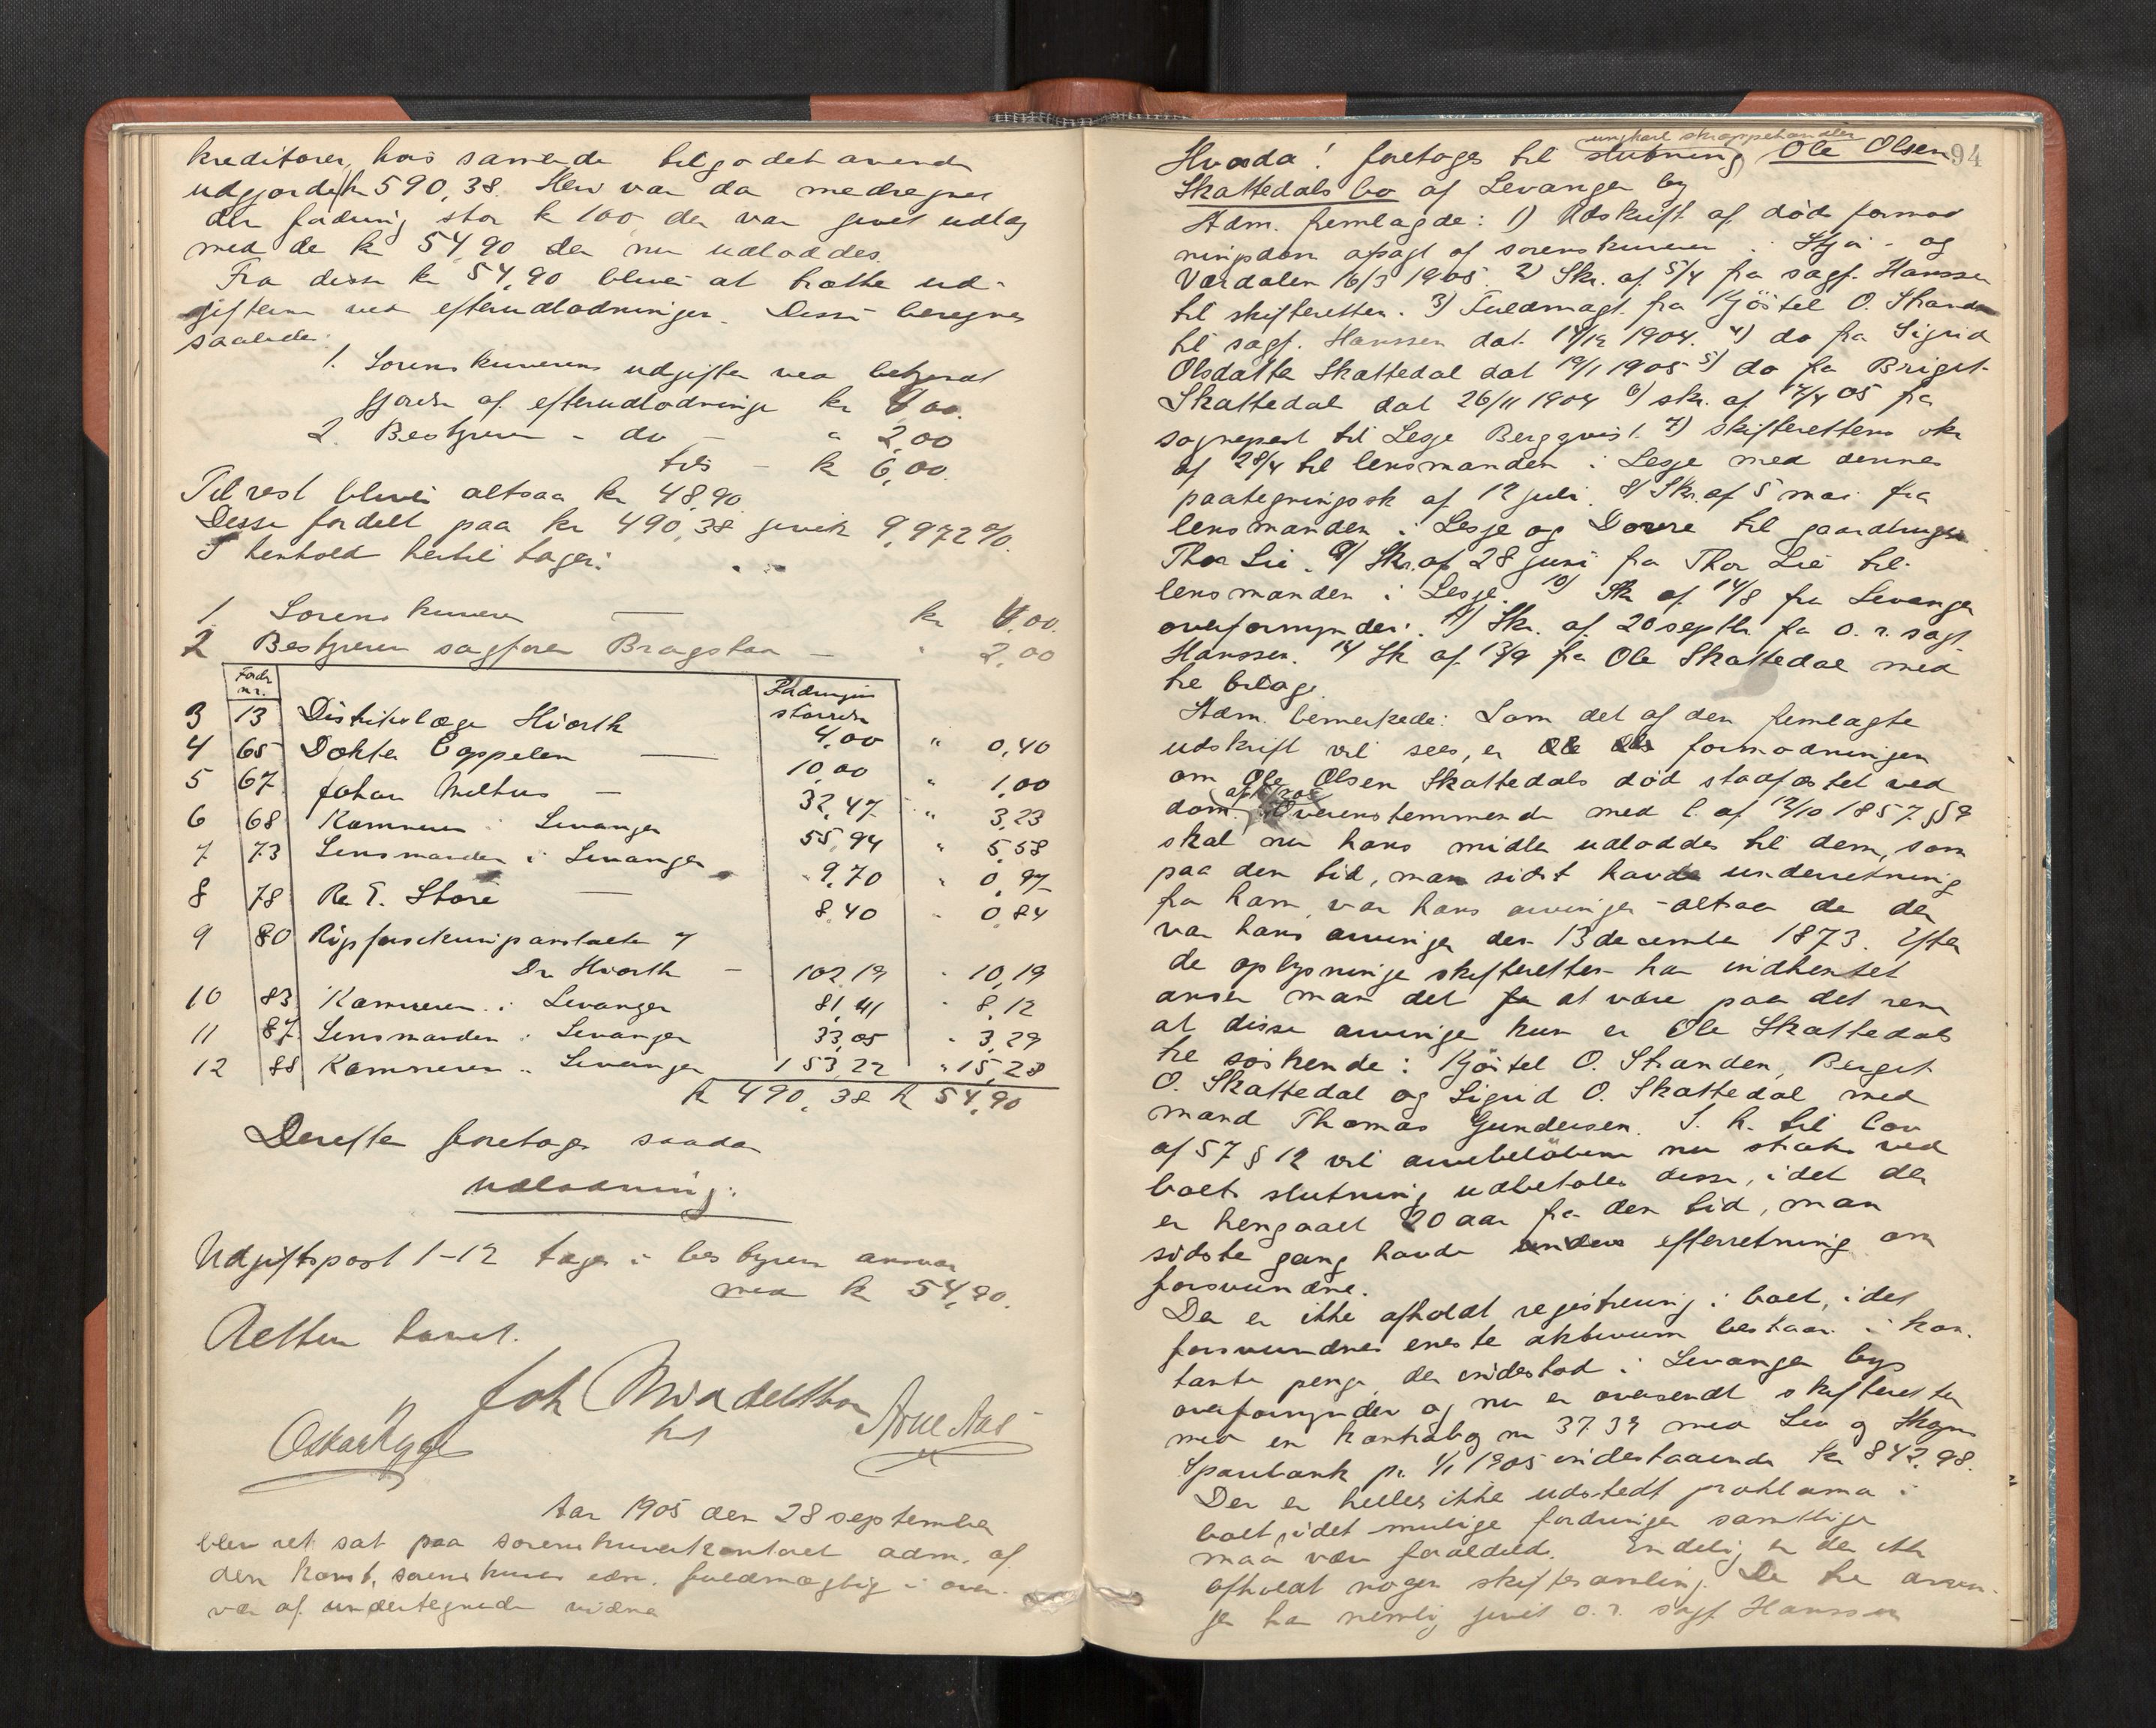 kreditorer, hvis samlede tilgodehavende
udgjorde kr 590,38. Heri var da medregnet
den fordring stor kr 100 der var givet udlæg
med de kr 54,90 der nu udloddes.
Fra disse kr 54,90 bliver at trække ud-
gifterne ved efterudlodningen. Disse beregnes
saaledes:
1. Sorenskriverens udgifter ved bekjendt
gjörelse af efterudlodninge kr 4,00.
2. Bestyreren - do - " 2,00
tils - kr 6,00.
Til rest bliver altsaa kr 48,90.
Disse fordelt paa kr 490,38 giver 9,972%.
I henhold hertil tager:
1. Sorenskriveren — kr 4,00.
2 Bestyreren sagförer Bragstad — " 2,00
Fordr nr. Fordringens störrelse
3 13 Distriktslæge Hiorth 4,00 " 0,40
4 65 Dokter Coppelen — 10,00 " 1,00
5 67 Johan Melhus — 32,47 " 3,23
6 68 Kæmneren i Levanger 55,94 " 5,58
7 73 Lensmanden i Levanger 9,70 " 0,97
8 78 Störe — 8,40 " 0,84
9 80 Rigsforsikringsanstalten v
Dr. Hiorth — 102,19 " 10,19
10 83 Kæmneren i Levanger 81,41 " 8,12
11 87 Lensmanden i Levanger 33,05 " 3,29
12 88 Kæmneren i Levanger 153,22 " 15,28
kr 490,38 kr 54,90
Derefter foretoges saadan
udlodning:
Udgiftspost 1-12 tages i bestyrerens ansvar
med kr 54,90.
Retten hævet.
Joh Mindelsthon
kst
Oskar Rygg Arne Aas
Aar 1905 den 28 september
blev ret sat paa sorenskriverkontoret adm. af
den konst. sorenskriver edsv. fuldmægtig i over-
vær af undertegnede vidner
94
ungkarl skreppehandler
Hvorda! foretoges til slutning Ole Olsen
Skattedals bo af Levanger by
Adm. fremlagde: 1) Udskrift af döds formod
ningsdom afsagt af sorenskriveren i Stjör- og
Værdalen 16/3 1905. 2) Skr. af 5/4 fra sagf. Hanssen
til skifteretten. 3) Fuldmagt fra Kjöstel O. Stranden
til sagf. Hanssen dat. 14/12 1904. 4) do fra Sigrid
Olsdatter Skattedal dat 19/1 1905 5) do fra Briget
Skattedal dat 26/11 1904 6) skr. af 14/4 05 fra
sognepræst til Lesje Bergqvist. 7) skifterettens skr
af 28/4 til lensmanden i Lesje med dennes
paategningssk af 12 juli. 8) Skr. af 5 mai fra
lensmanden i Lesje og Dovre til gaardbruger
Thor Lie. 9) Skr. af 28 juni fra Thor Lie til
lensmanden i Lesje. 10) Skr af 14/8 fra Levanger
overformynderi. 11) Skr. af 20 septbr. fra o. r. sagf.
Hanssen. 12) Sk af 13/9 fra Ole Skattedal med
tre bilage.
Adm. bemerkede: Som det af den fremlagte
udskrift vil sees, er formodningen
om Ole Olsen Skattedals död stadfæstet ved
dom. Overensstemmende med l. af 12/10 1857 § 9
skal nu hans midler udloddes til dem, som
paa den tid, man sidst havde underretning
fra ham, var hans arvinger - altsaa de der
var hans arvinger den 13 december 1873. Efter
de oplysninger skifteretten har indhentet
anser man det at være paa det rene
at disse arvinge kun er Ole Skattedals
tre söskende: Kjöstel O. Stranden, Berget
O. Skattedal og Sigrid O. Skattedal med
mand Thomas Gundersen. I. h. til lov
af 57 § 12 vil arvebelöbene nu straks ved
boets slutning udbetales disse, idet der
er hengaaet 20 aar fra den tid, man
sidste gang havde efterretning om
forsvundne.
Der er ikke afholdt registrering i boet, idet
forsvundnes eneste aktivum bestaar i kon-
tante penge, der indestod i Levanger bys
overformynderi og nu er oversendt skifteretten
med en kontrabog nr 3739 med Lev og Skogns
Sparebank pr. 1/1 1905 indestaaende kr 842,98.
Der er heller ikke udstedt proklama i
boet, idet mulige fordringer samtlige
maa være forældede. Endelig er der ikke
afholdt nogen skiftesamling. De tre arvin-
ger har nemlig givet o. r. sagf. Hanssen